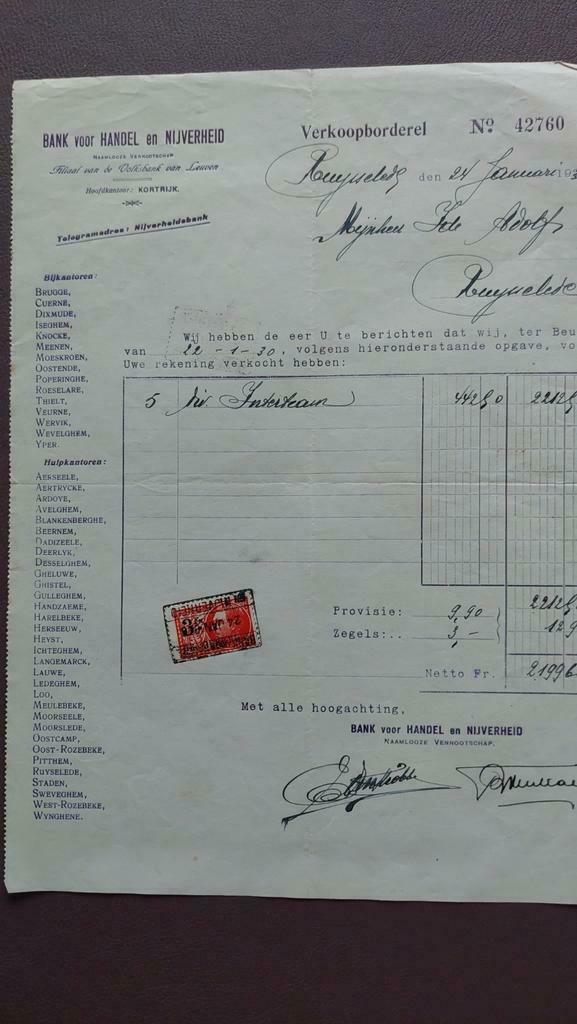 BANK voor HANDEL en NIJVERHEID
NAAMLOOZE VENNOOTSCHAP
Filiaal van de Volksbank van Leuven
Hoofdkantoor: KORTRIJK.
Telegramadres: Nijverheidsbank
Verkoopborderel Nº 42760
Ruysselede den 24 Januari 193
Mijnheer Adolf
Ruysselede
Bijkantoren:
BRUGGE,
CUERNE,
DIXMUDE,
ISEGHEM,
KNOCKE,
MEENEN,
MOESKROEN,
OOSTENDE,
POPERINGHE,
ROESELARE,
THIELT,
VEURNE,
WERVIK,
WEVELGHEM,
YPER.
Hulpkantoren:
AERSEELE,
AERTRYCKE,
ARDOYE,
AVELGHEM,
BLANKENBERGHE,
BEERNEM,
DADIZEELE,
DEERLYK,
DESSELGHEM,
GHELUWE,
GHISTEL,
GULLEGHEM,
HANDZAEME,
HARELBEKE,
HERSEEUW,
HEYST,
ICHTEGHEM,
LANGEMARCK,
LAUWE,
LEDEGHEM,
LOO,
MEULEBEKE,
MOORSEELE,
MOORSLEDE,
OOSTCAMP,
OOST-ROZEBEKE,
PITTHEM,
RUYSELEDE,
STADEN,
SWEVEGHEM,
WEST-ROZEBEKE,
WYNGHENE.
Wij hebben de eer U te berichten dat wij, ter Beu
van 22-1-30, volgens hieronderstaande opgave, vo
Uwe rekening verkocht hebben:
5 4425,0 22125
22125
Provisie: 9,90
Zegels:.. 3,- 12 9
Netto Fr. 21996
24 JAN
Met alle hoogachting,
BANK voor HANDEL en NIJVERHEID
NAAMLOOZE VENNOOTSCHAP.